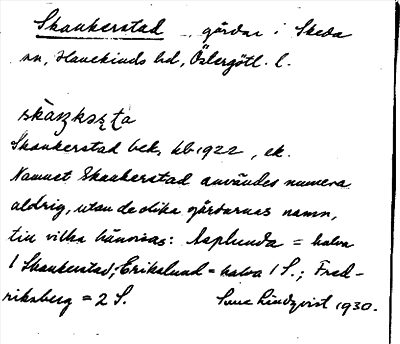 Skankerstad gårdar i Skeda
sn, Hanekinds hd, Östergötl. l.
Skankerstad bek. kb 1922, ek.
Namnet Skankerstad användes numera
aldrig, utan de olika gårdarnas namn,
till vilka hänvisas: Asplunda = halva
1 Skankerstad; Erikslund = halva 1 S.; Fred-
riksberg = 2 S. Sune Lindqvist 1930.